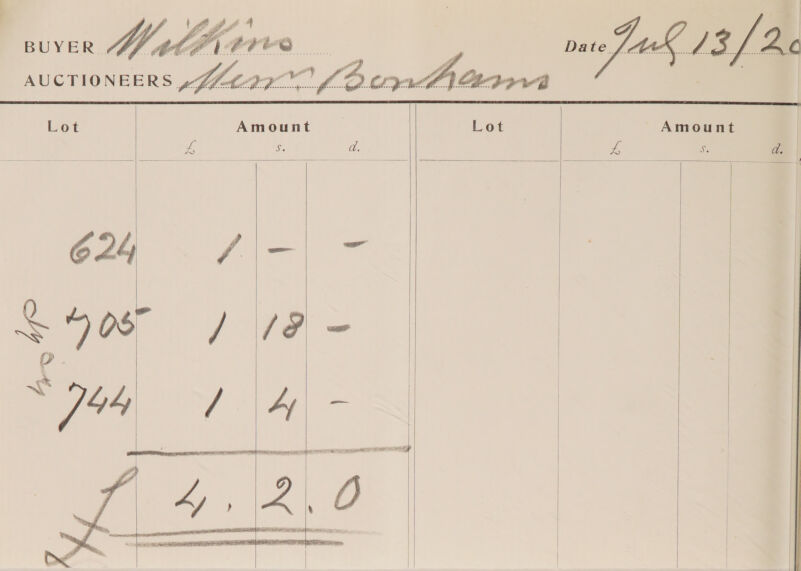 BUYER Wilkins Date July 13/20
AUCTIONEERS Messrs Bonhams
Lot Amount Lot Amount
£ s. d. £ s. d.
624 1 - -
705 1 18 -
744 1 4 -
£ 4. 2. 0